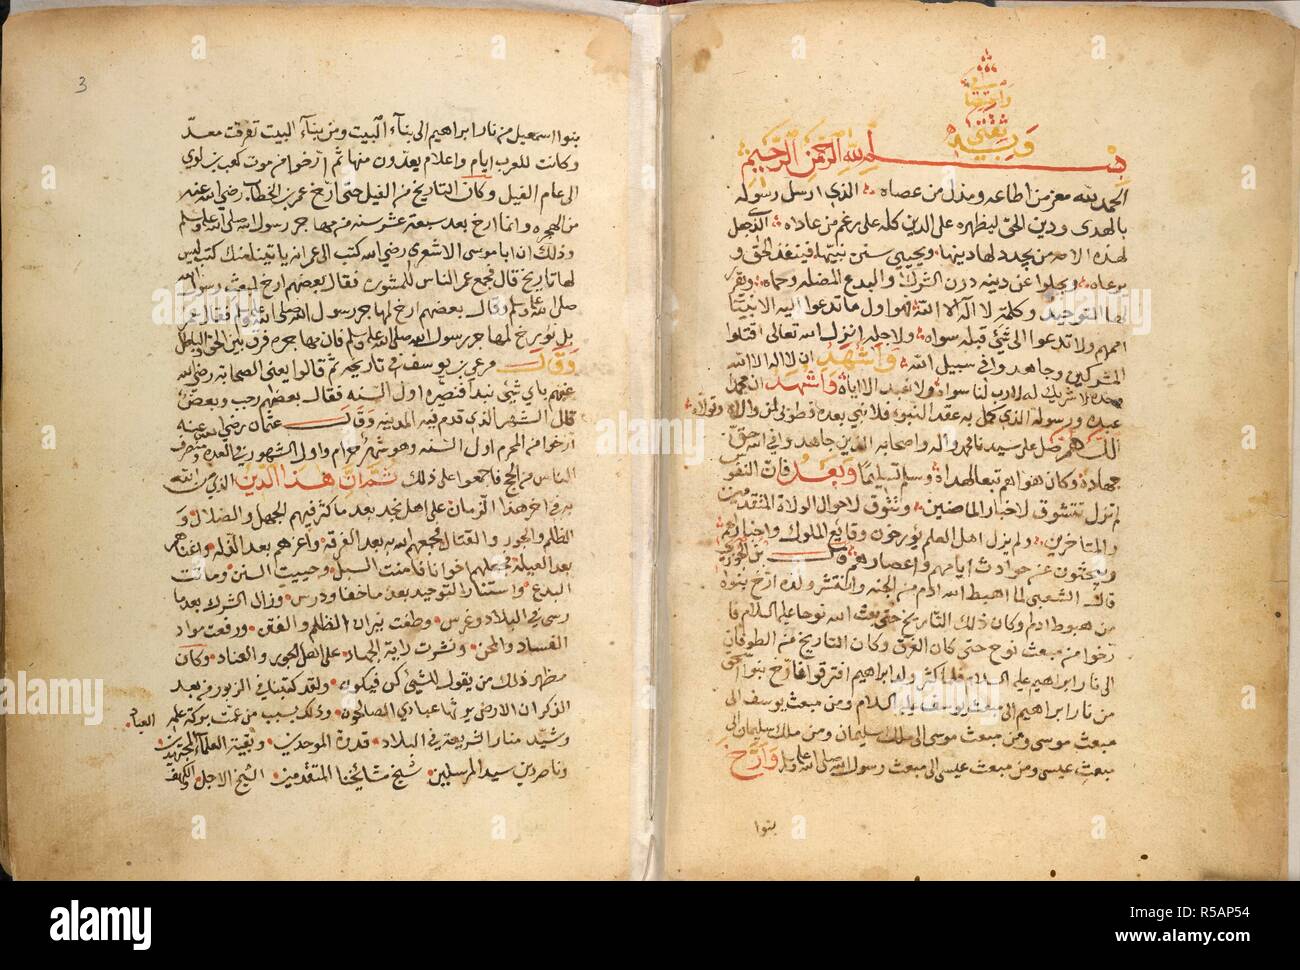 وبه نستعين
بسم الله الرحمن الرحيم
الحمد لله معز من اطاعه ومذل من عصاه الذي ارسل رسوله
بالهدى ودين الحق ليظهره على الدين كله على رغم من عاداه الذي جعل
لهذه الامة من يجدد لها دينها ويحيي سنن نبيها فينفذ الحق و
يرعاه ويجلوا عن دينه درن الشرك والبدع المضله وحماه ويقرر
لها التوحيد وكلمة لا اله الا الله التي هي اول ما تدعوا اليه الانبيا
اممهم ولا تدعوا الى شيء قبله سواه ولاجله انزل الله تعالى اقتلوا
المشركين وجاهدوا في سبيل الله واشهد ان لا اله الا الله
وحده لا شريك له لا رب لنا سواه ولا نعبد الا اياه واشهد ان محمدا
عبده ورسوله الذي كمل به عقد النبوة فلا نبي بعده فطوبى لمن والاه وتولاه
اللهم صل على سيدنا محمد واله واصحابه الذين جاهدوا في الله حق
جهاده وكان هواهم تبعا لهداه وسلم تسليما وبعد فان النفوس
لم تزل تتشوق لاخبار الماضين وتتوق لاحوال الولاة المتقدمين
والمتاخرين ولم يزل اهل العلم يؤرخون وقايع الملوك واخبارهم
ويبحثون عن حوادث ايامهم واعصارهم قال بن الجوزي
قال الشعبي لما اهبط الله ادم من الجنه وانتشر ولده ارخ بنوه
من هبوط ادم وكان ذلك التاريخ حتى بعث الله نوحا عليه السلام فا
رخوا من مبعث نوح حتى كان الغرق وكان التاريخ من الطوفان
الى نار ابراهيم عليه السلام فلما كثر ولد ابراهيم افترقوا فارخ بنوا اسحق
من نار ابراهيم الى مبعث يوسف عليه السلام ومن مبعث يوسف الى
مبعث موسى ومن مبعث موسى الى ملك سليمان ومن ملك سليمان الى
مبعث عيسى ومن مبعث عيسى الى مبعث رسول الله صلى الله عليه وسلم وارخ
بنوا
3
بنوا اسمعيل من نار ابراهيم الى بناء البيت ومن بناء البيت تفرقت معد
وكانت للعرب ايام واعلام يعدون منها ثم ارخوا من موت كعب بن لوي
الى عام الفيل وكان التاريخ من الفيل حتى ارخ عمر بن الخطاب رضي الله عنه
من الهجره وانما ارخ بعد سبعة عشر سنه من مهاجر رسول الله صلى الله عليه وسلم
وذلك ان ابا موسى الاشعري رضي الله كتب الى عمر انه ياتينا منك كتب ليس
لها تاريخ قال فجمع عمر الناس للمشوره فقال بعضهم ارخ لمبعث رسول الله
صلى الله عليه وسلم وقال بعضهم ارخ لمهاجر رسول الله صلى الله عليه وسلم فقال عمر
بل نورخ لمهاجر رسول الله صلى الله عليه وسلم فان مهاجره فرق بين الحق والباطل
وقال مرعي بن يوسف في تاريخه ثم قالوا يعني الصحابة رضي الله
عنهم باي شيء نبدا فنصيره اول السنه فقال بعضهم رجب وبعض
قال الشهر الذي قدم فيه المدينه وقال عثمان رضي الله عنه
ارخوا من المحرم اول السنه وهو شهر حرام واول الشهور في العده ومنصرف
الناس من الحج فاجمعوا على ذلك ثم ان هذا الدين الذي من الله
به في اخر هذا الزمان على اهل نجد بعد ما كثر فيهم الجهل والضلال و
الظلم والجور والقتال فجمعهم الله به بعد الفرقه واعزهم بعد الذله واغناهم
بعد العيله وجعلهم اخوانا فامنت السبل وحييت السنن وماتت
البدع واستنار التوحيد بعد ما خفا ودرس وزال الشرك بعد ما
رسى في البلاد وغرس وطفت نيران الظلم والفتن ورفعت مواد
الفساد والمحن ونشرت راية الجهاد على اهل الجور والعناد وكان
مظهر ذلك من يقول للشيء كن فيكون ولقد كتبنا في الزبور من بعد
الذكر ان الارض يرثها عبادي الصالحون وذلك بسبب من عمت بركة علمه العباد
وشيد منار الشريعة في البلاد قدوة الموحدين وبقية العلماء المجتهدين
وناصر دين سيد المرسلين شيخ مشائخنا المتقدمين الشيخ الاجل والكهف
alamy
Image ID: R5AP54
www.alamy.com